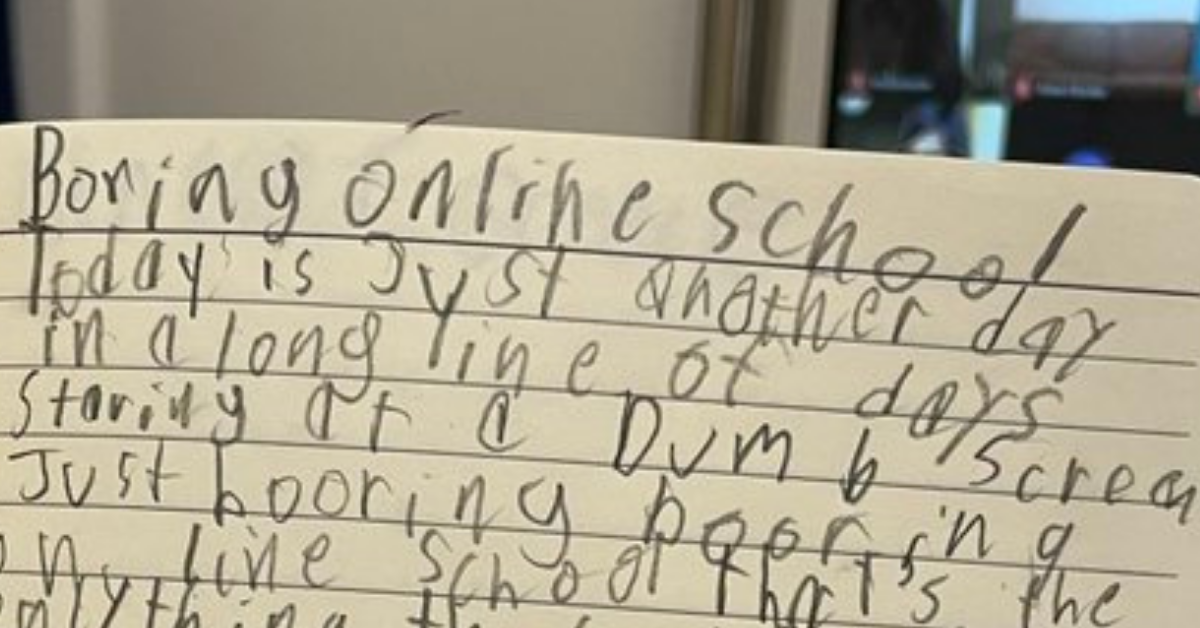 Boring online school
Today is Just another day
in a long line of days
Staring at a Dumb Screen
Just booring booring
ony line school that's the